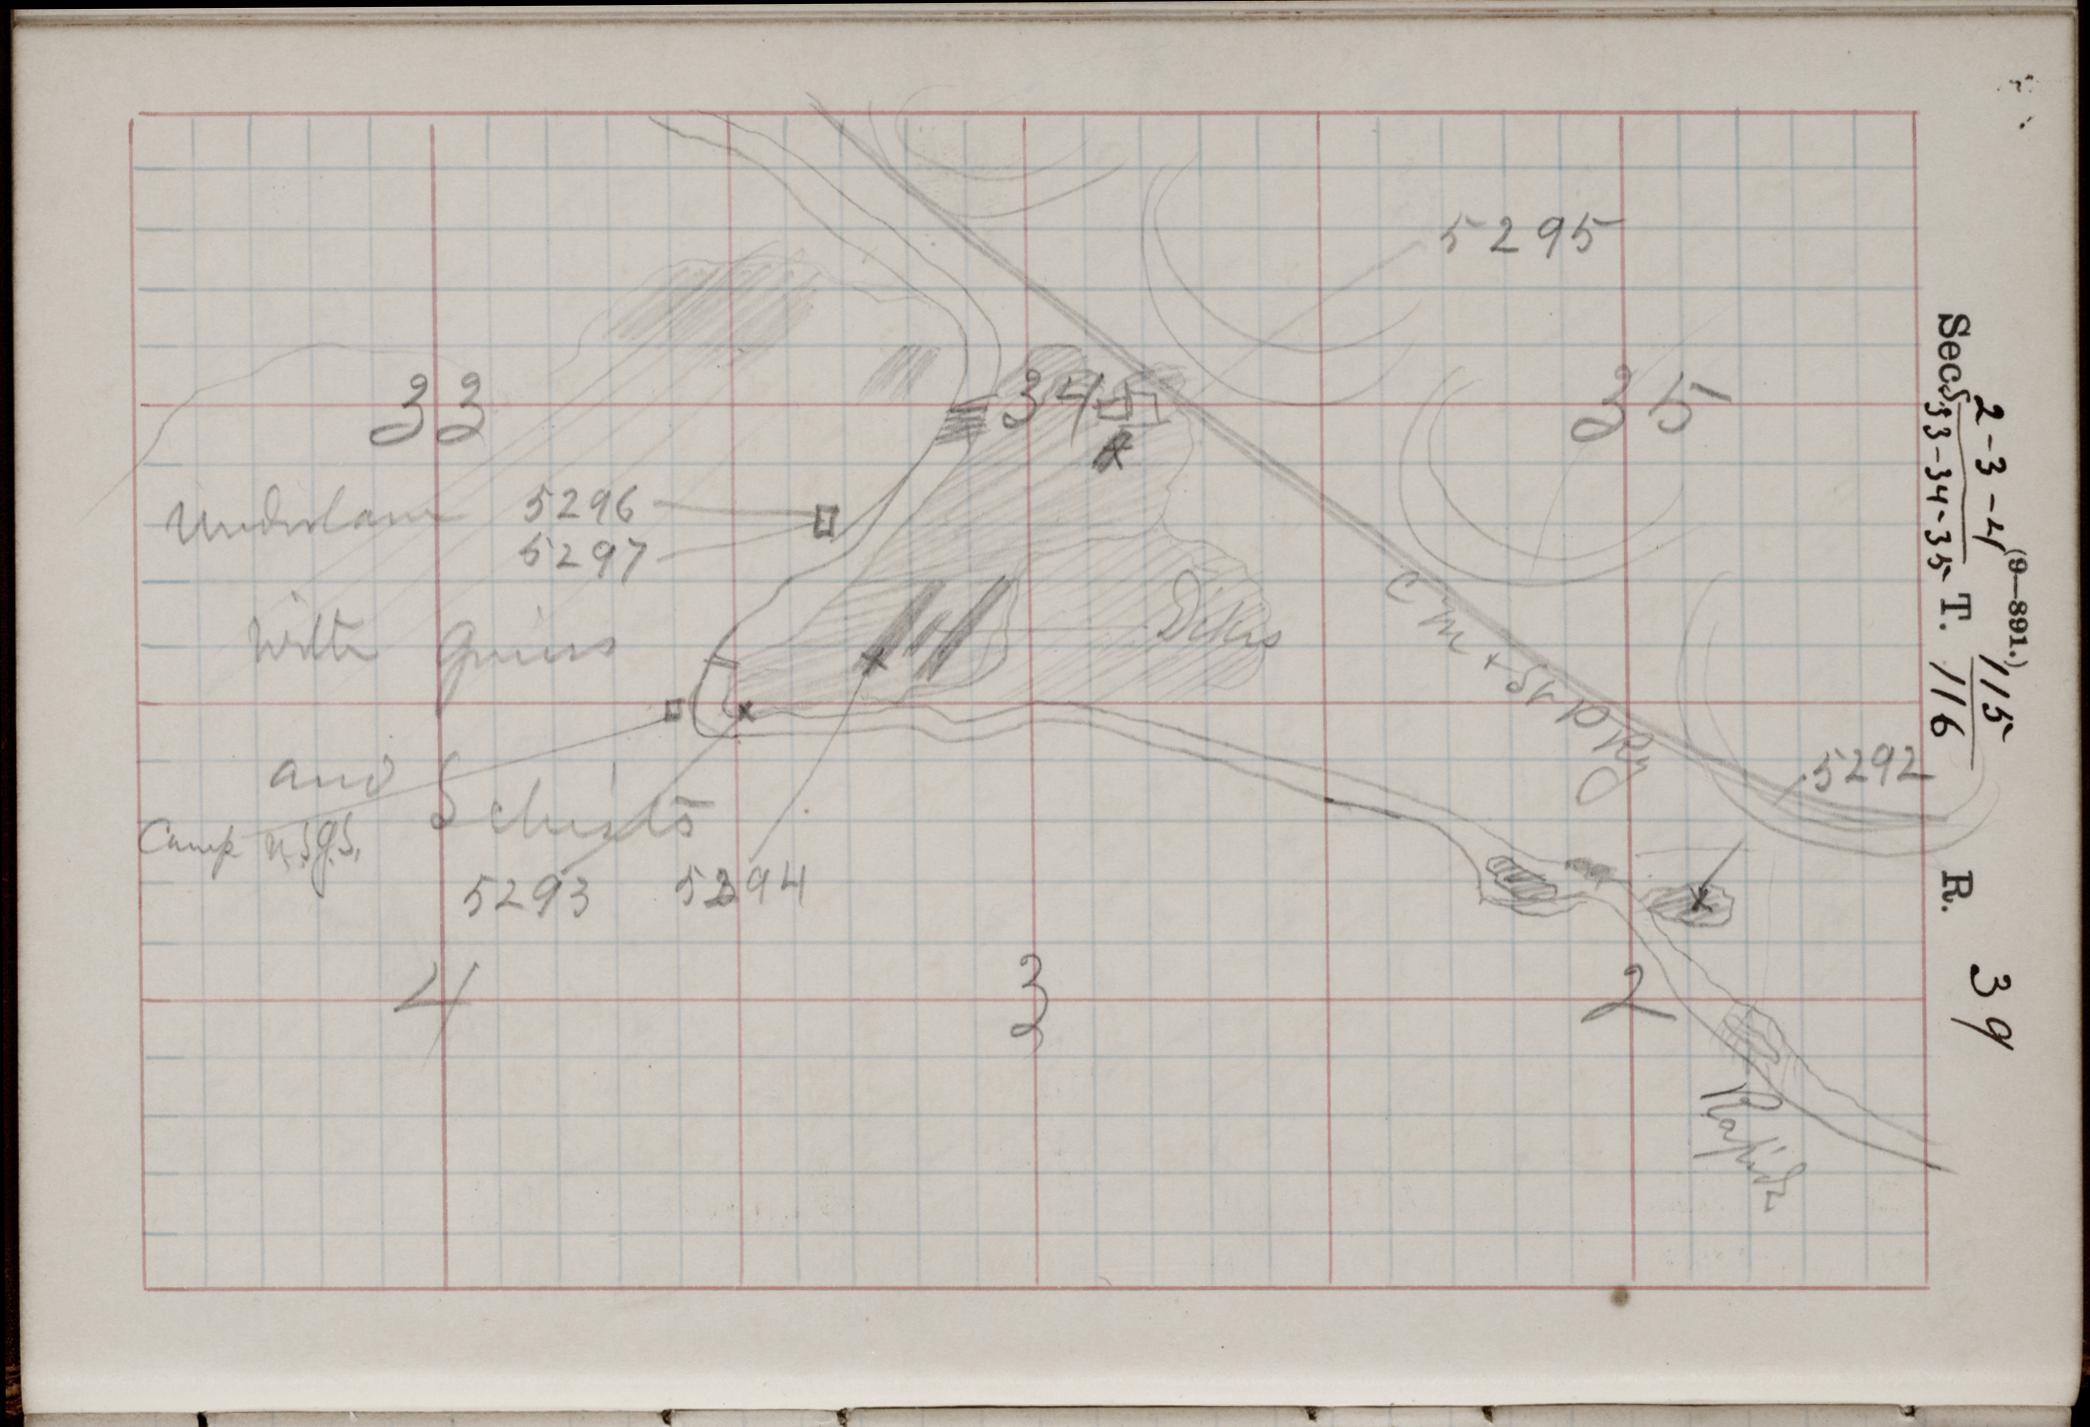 5295
33
34
35
5296
5297
with Gneiss
Dikes
C M & St P Rly
and Schists
Camp U.S.G.S.
5292
5293
5294
4
3
2
Rapids
(9—891.)
2-3-4 115
Secs 33-34-35 T. 116 R. 39